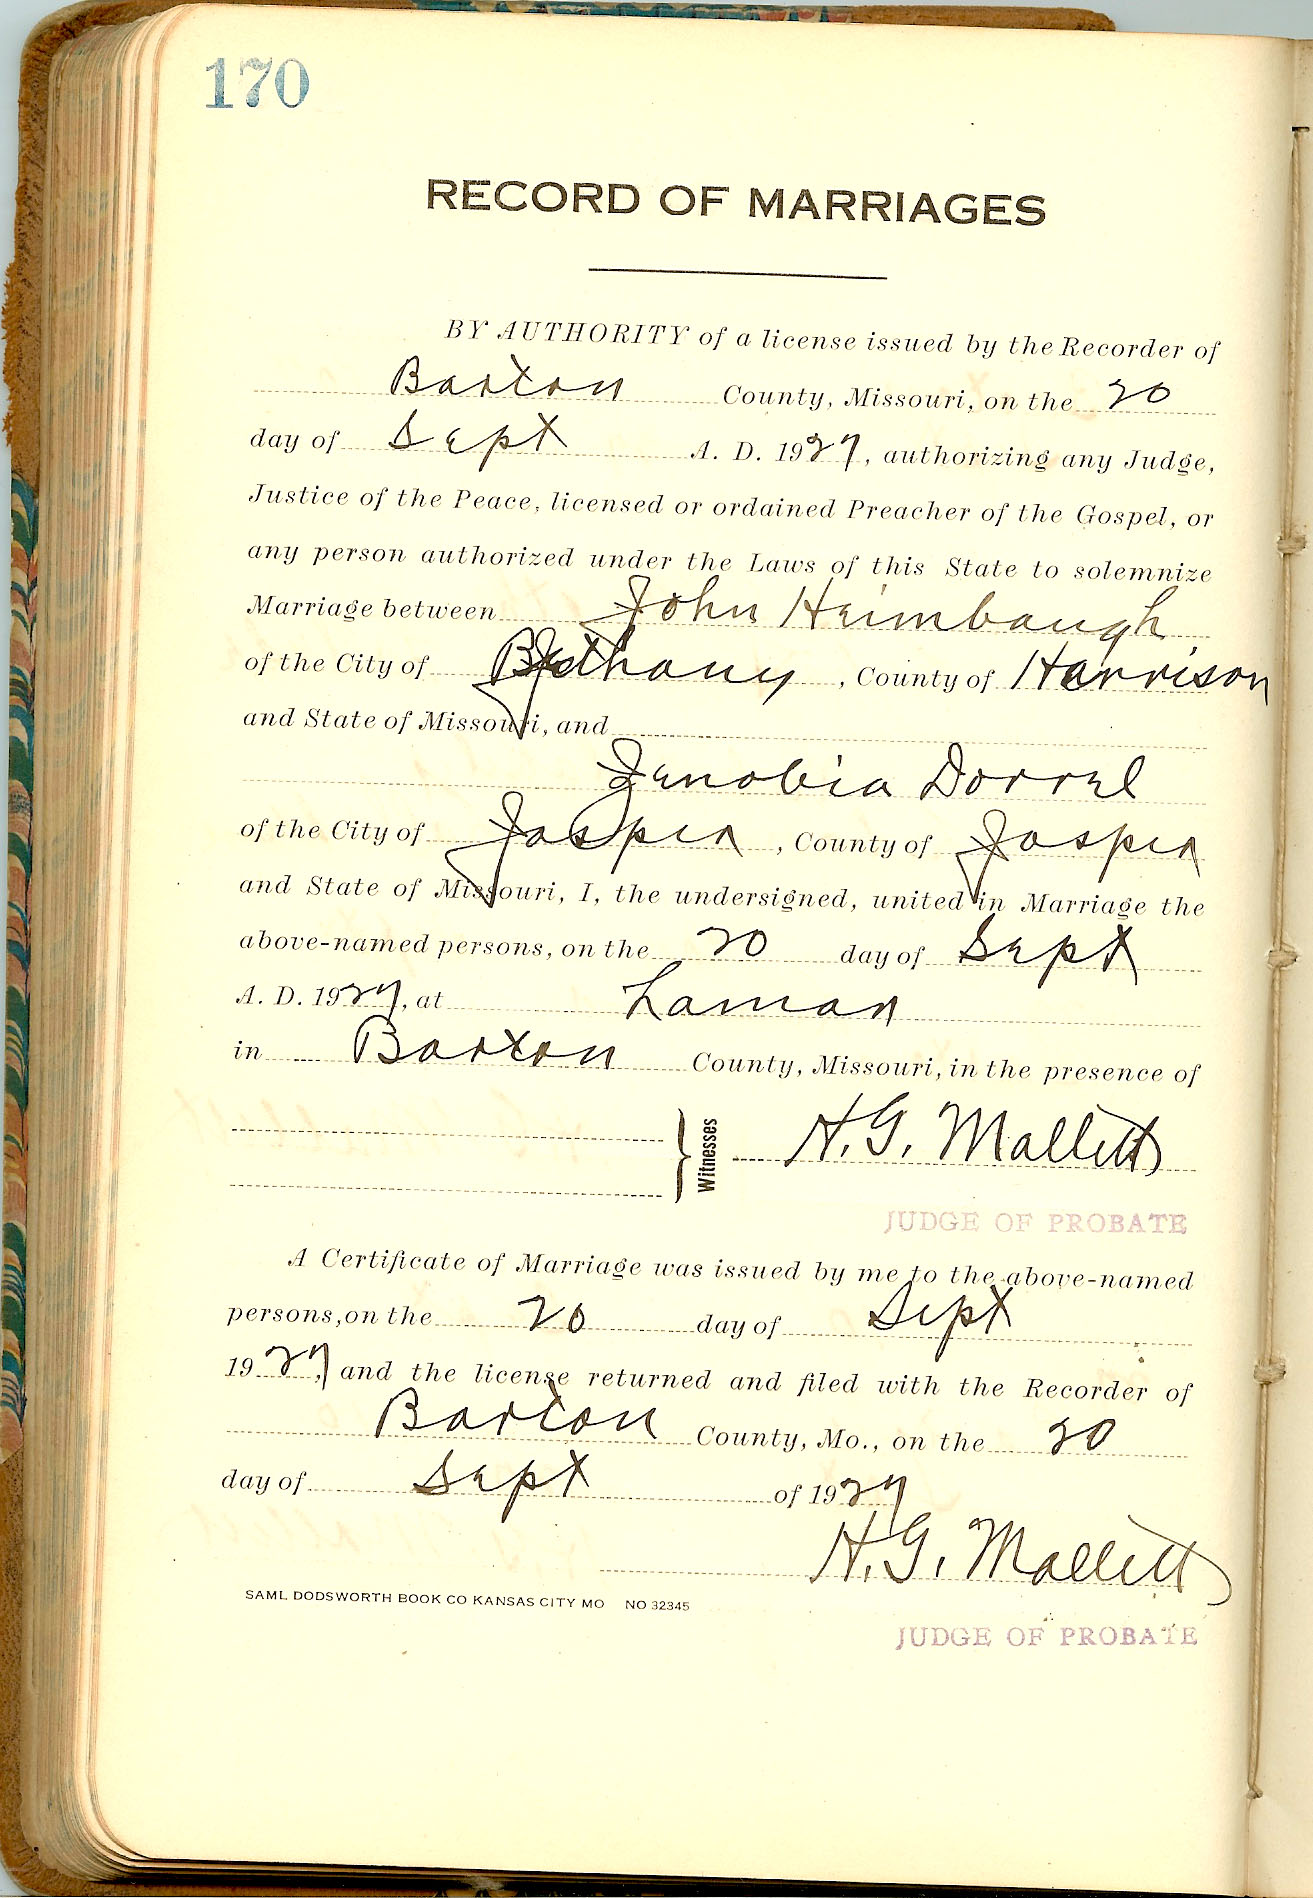 170
RECORD OF MARRIAGES
BY AUTHORITY of a license issued by the Recorder of
Barton County, Missouri, on the 20
day of Sept A. D. 1927, authorizing any Judge,
Justice of the Peace, licensed or ordained Preacher of the Gospel, or
any person authorized under the Laws of this State to solemnize
Marriage between John Heimbaugh
of the City of Bethany, County of Harrison
and State of Missouri, and
Zenobia Dorrel
of the City of Jasper, County of Jasper
and State of Missouri, I, the undersigned, united in Marriage the
above-named persons, on the 20 day of Sept
A. D. 1927, at Lamar
in Barton County, Missouri, in the presence of
Witnesses H. G. Mallett
JUDGE OF PROBATE
A Certificate of Marriage was issued by me to the above-named
persons, on the 20 day of Sept
1927, and the license returned and filed with the Recorder of
Barton County, Mo., on the 20
day of Sept of 1927
H. G. Mallett
SAML DODSWORTH BOOK CO KANSAS CITY MO NO 32345
JUDGE OF PROBATE